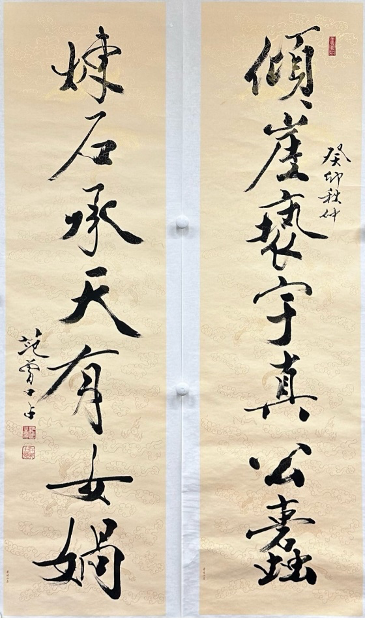 癸卯秋仲
傾崖亵宇真公蠹
煉石承天有女媧
范曾